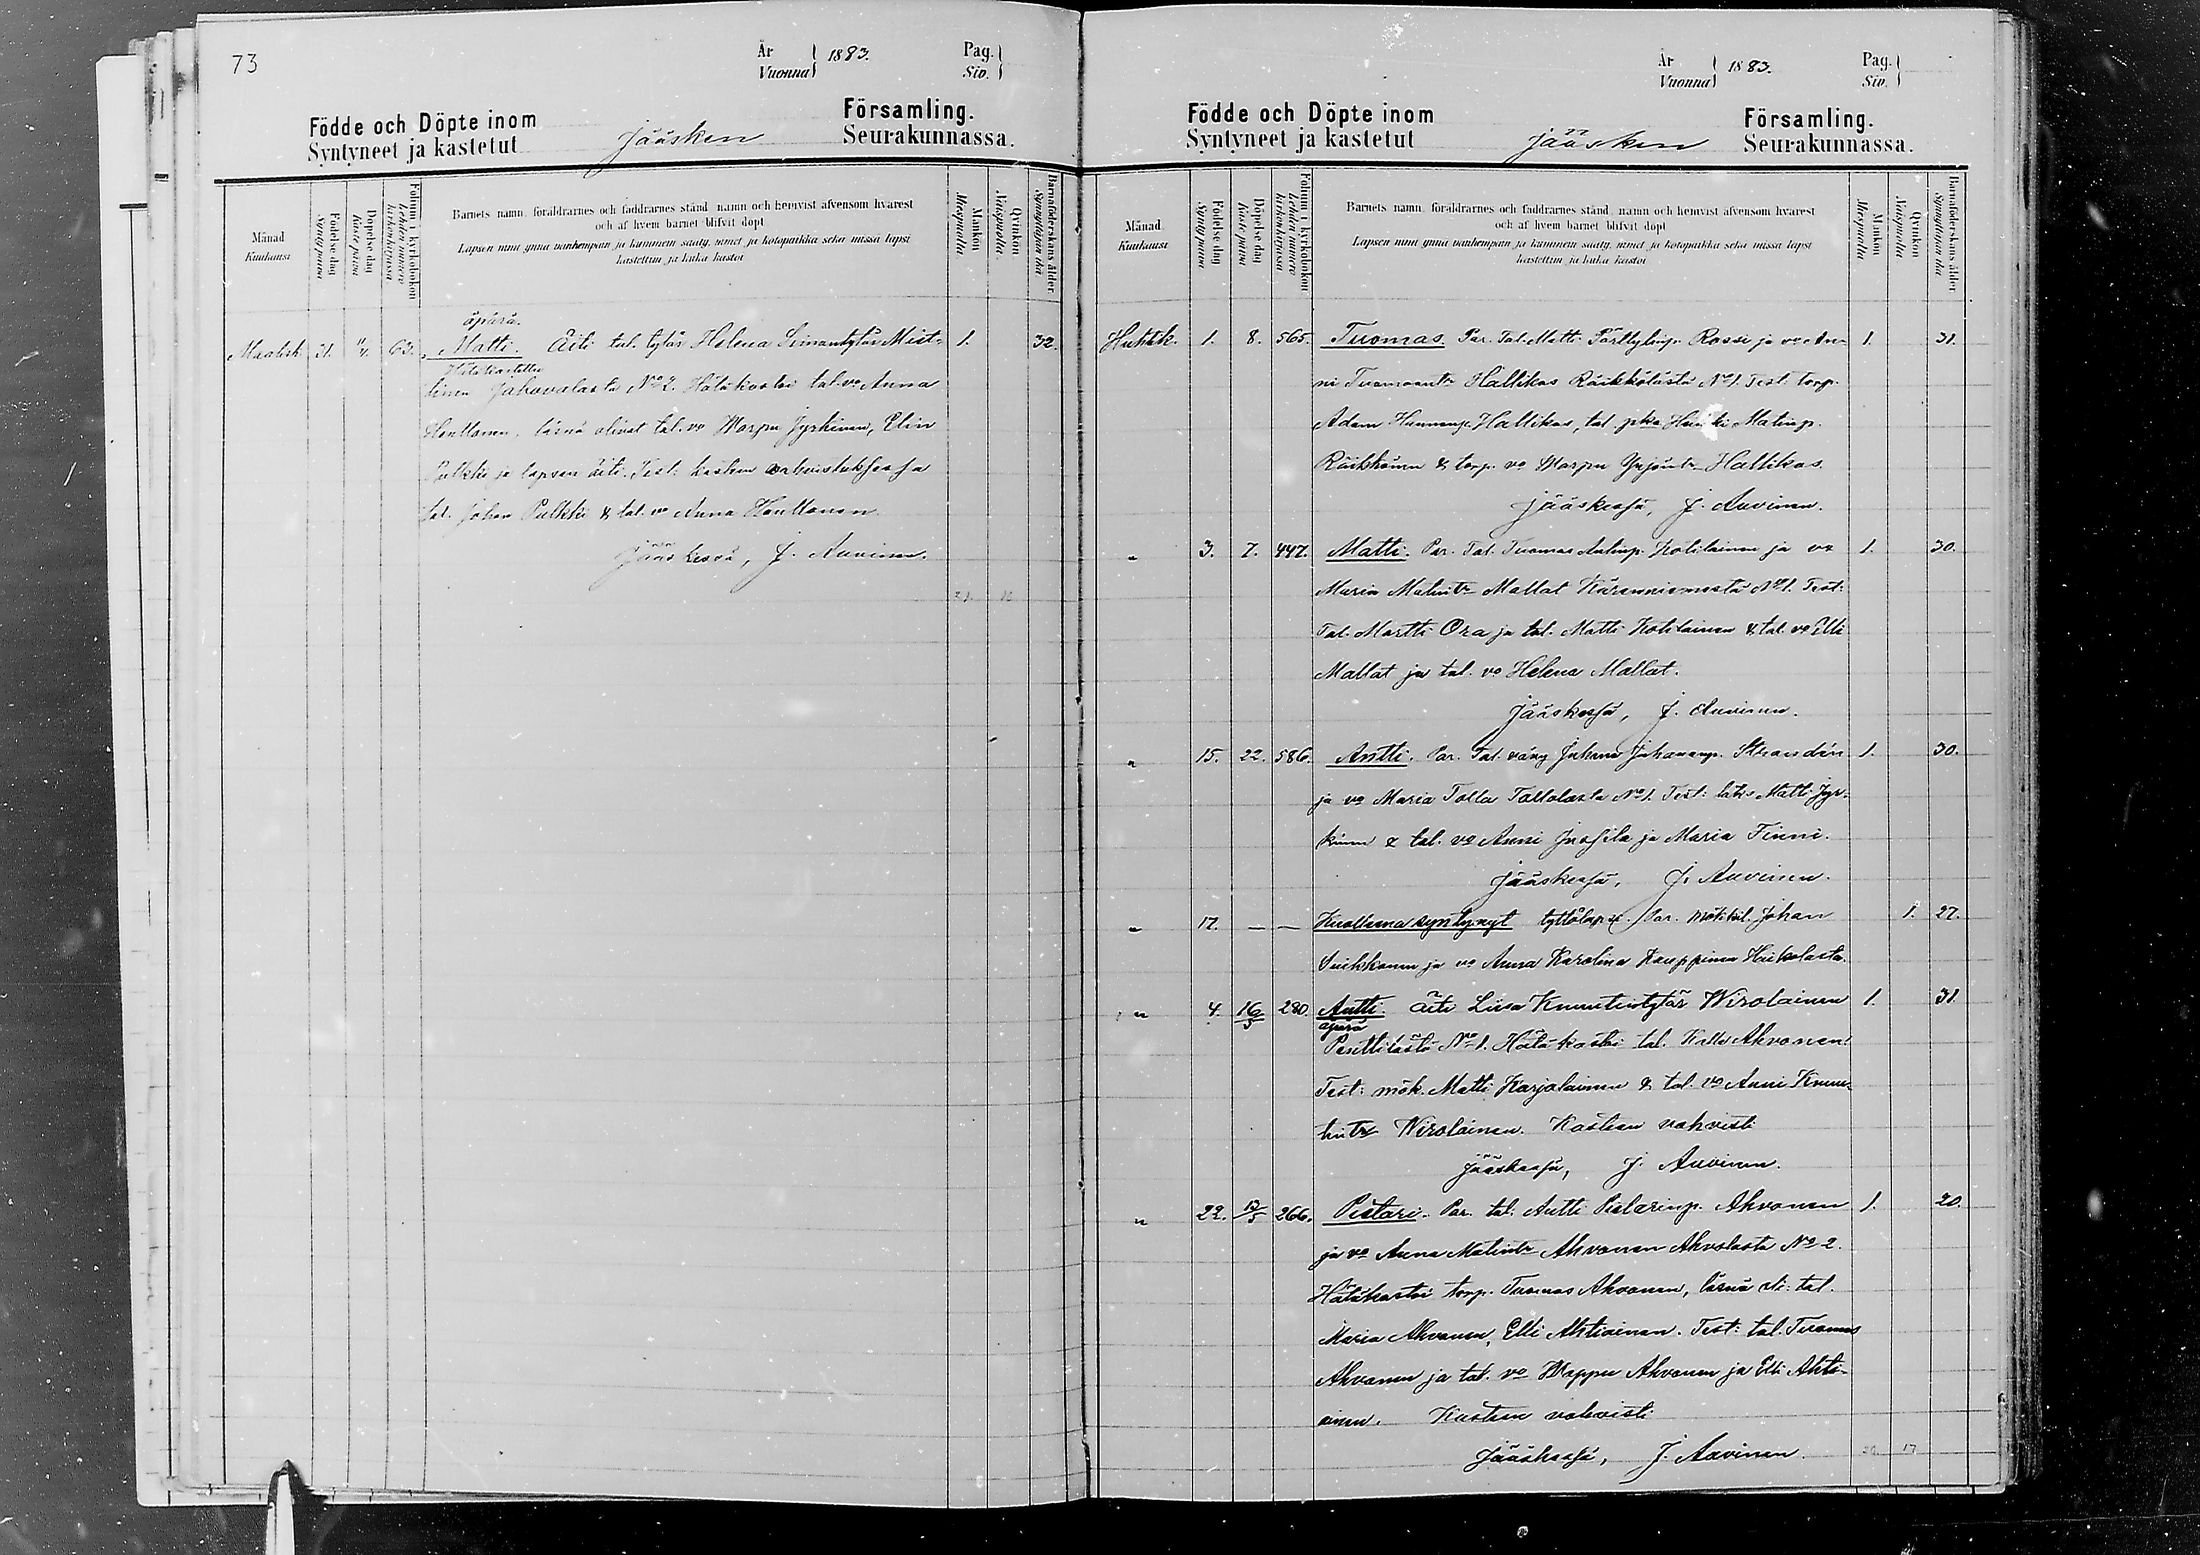 73
År Vuonna 1883. Pag. Siv.
Födde och Döpte inom Församling.
Syntyneet ja kastetut Jääsken Seurakunnassa.
Månad Kuukausi
Födelse dag Syntypäivä
Döpelse dag Kaste päivä
Folium i kyrkoboken Lehden numero kirkonkirjassa
Barnets namn, föräldrarnes och faddrarnes stånd, namn och hemvist äfvensom hvarest
och af hvem barnet blifvit döpt
Lapsen nimi ynnä vanhempain ja kummein sääty, nimet ja kotopaikka sekä missä lapsi
kastettiin ja kuka kastoi
Mankön Miespuolia
Qvinkön Naispuolia
Barnaföderskans ålder Synnyttäjän ikä
äpärä.
Maalisk. 31. 11/4. 63. Matti. Äiti tal. tytär Helena Simontytär Mist- 1. 32.
Hätäkastettu
linen Jakovalasta No 2. Hätäkastoi tal. vo Anna
Honttonen. läsnä olivat tal. vo Marpu Jyrkinen, Elin
Pulkki ja lapsen äiti. Test: kasteen vahvistuksessa
tal. Johan Pulkki & tal. vo Anna Honttonen
Jääskessä, J. Auvinen.
År Vuonna 1883. Pag. Siv.
Födde och Döpte inom Församling.
Syntyneet ja kastetut Jääsken Seurakunnassa.
Månad Kuukausi
Födelse dag Syntypäivä
Döpelse dag Kaste päivä
Folium i kyrkoboken Lehden numero kirkonkirjassa
Barnets namn, föräldrarnes och faddrarnes stånd, namn och hemvist äfvensom hvarest
och af hvem barnet blifvit döpt
Lapsen nimi ynnä vanhempain ja kummein sääty, nimet ja kotopaikka sekä missä lapsi
kastettiin ja kuka kastoi
Mankön Miespuolia
Qvinkön Naispuolia
Barnaföderskans ålder Synnyttäjän ikä
Huhtik. 1. 8. 565. Tuomas. Par. Tal. Matti Pärttylinp. Rossi ja vo An- 1. 31.
ni Tuomaantr Hallikas Räikkölästä No 1. Test. torp.
Adam Hallikas, tal. pka Heikki Matinp.
Räikkönen & torp. vo Marpu Yrjöntr Hallikas.
Jääskessä, J. Auvinen.
" 3. 7. 447. Matti. Par. Tal. Tuomas Antinp. Kotilainen ja vo 1. 30.
Maria Matintr Mallat Kärenniemestä No 1. Test:
Tal. Martti Ora ja tal. Matti Kotilainen & tal. vo Elli
Mallat ja tal. vo Helena Mallat.
Jääskessä, J. Auvinen.
" 15. 22. 586. Antti. Par. Tal. väng Juhana Juhananp. Strandén 1. 30.
ja vo Maria Tolla Tallolasta No 1. Test: Matti Jyr-
kinen & tal. vo Anni Jussila ja Maria Finni.
Jääskessä, J. Auvinen.
" 17. — — Kuolleena syntynyt tyttölapsi. Par. Johan 1. 27.
Suikkanen ja vo Anna Karolina Kauppinen
" 4. 16/5 280. Antti. Äiti Liisa Knuutintytär Wirolainen 1. 31
äpärä
Penttilästä No 1. Hätäkastoi tal. Kalle Ahvonen.
Test: mök. Matti Karjalainen & tal. vo Anni Knuu-
tintr Wirolainen. Kasteen vahvisti
Jääskessä, J. Auvinen.
" 22. 13/5 266. Pietari. Par. tal. Antti Pietarinp. Ahvonen 1. 20.
ja vo Anna Matintr Ahvonen Ahvolasta No 2.
Hätäkastoi torp. Tuomas Ahvonen, läsnä oli: tal.
Maria Ahvonen, Elli Ahtiainen. Test: tal. Tuomas
Ahvonen ja tal. vo Wappu Ahvonen ja Elli Ahti-
ainen. Kasteen vahvisti
Jääskessä, J. Auvinen. 17